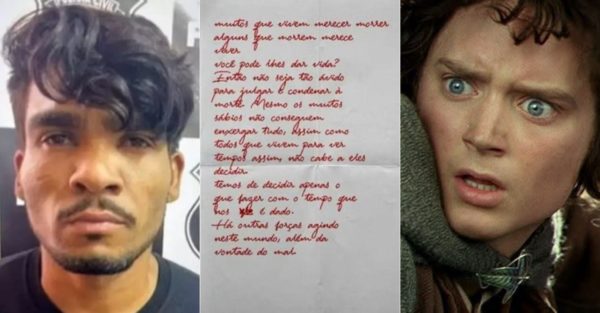 muitos que vivem merecer morrer
alguns que morrem merece
viver.
você pode lhes dar vida?
Então não seja tão ávido
para julgar e condenar à
morte. Mesmo os muitos
sábios não conseguem
enxergar tudo, assim como
todos que vivem para ver
tempos assim não cabe a eles
decidir.
temos de decidir apenas o
que fazer com o tempo que
nos é dado.
Há outras forças agindo
neste mundo, além da
vontade do mal.